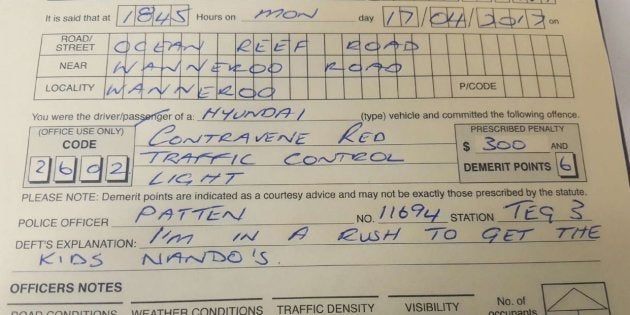 It is said that at 1845 Hours on MON day 17/04/2017 on
ROAD/ STREET OCEAN REEF ROAD
NEAR WANNEROO ROAD
LOCALITY WANNEROO P/CODE
You were the driver/passenger of a: HYUNDAI (type) vehicle and committed the following offence.
(OFFICE USE ONLY) CODE 2602
CONTRAVENE RED
TRAFFIC CONTROL
LIGHT
PRESCRIBED PENALTY
$ 300 AND
DEMERIT POINTS 6
PLEASE NOTE: Demerit points are indicated as a courtesy advice and may not be exactly those prescribed by the statute.
POLICE OFFICER PATTEN NO. 11694 STATION TEG 3
DEFT'S EXPLANATION: I'M IN A RUSH TO GET THE
KIDS NANDO'S.
OFFICERS NOTES
ROAD CONDITIONS WEATHER CONDITIONS TRAFFIC DENSITY VISIBILITY No. of
occupants